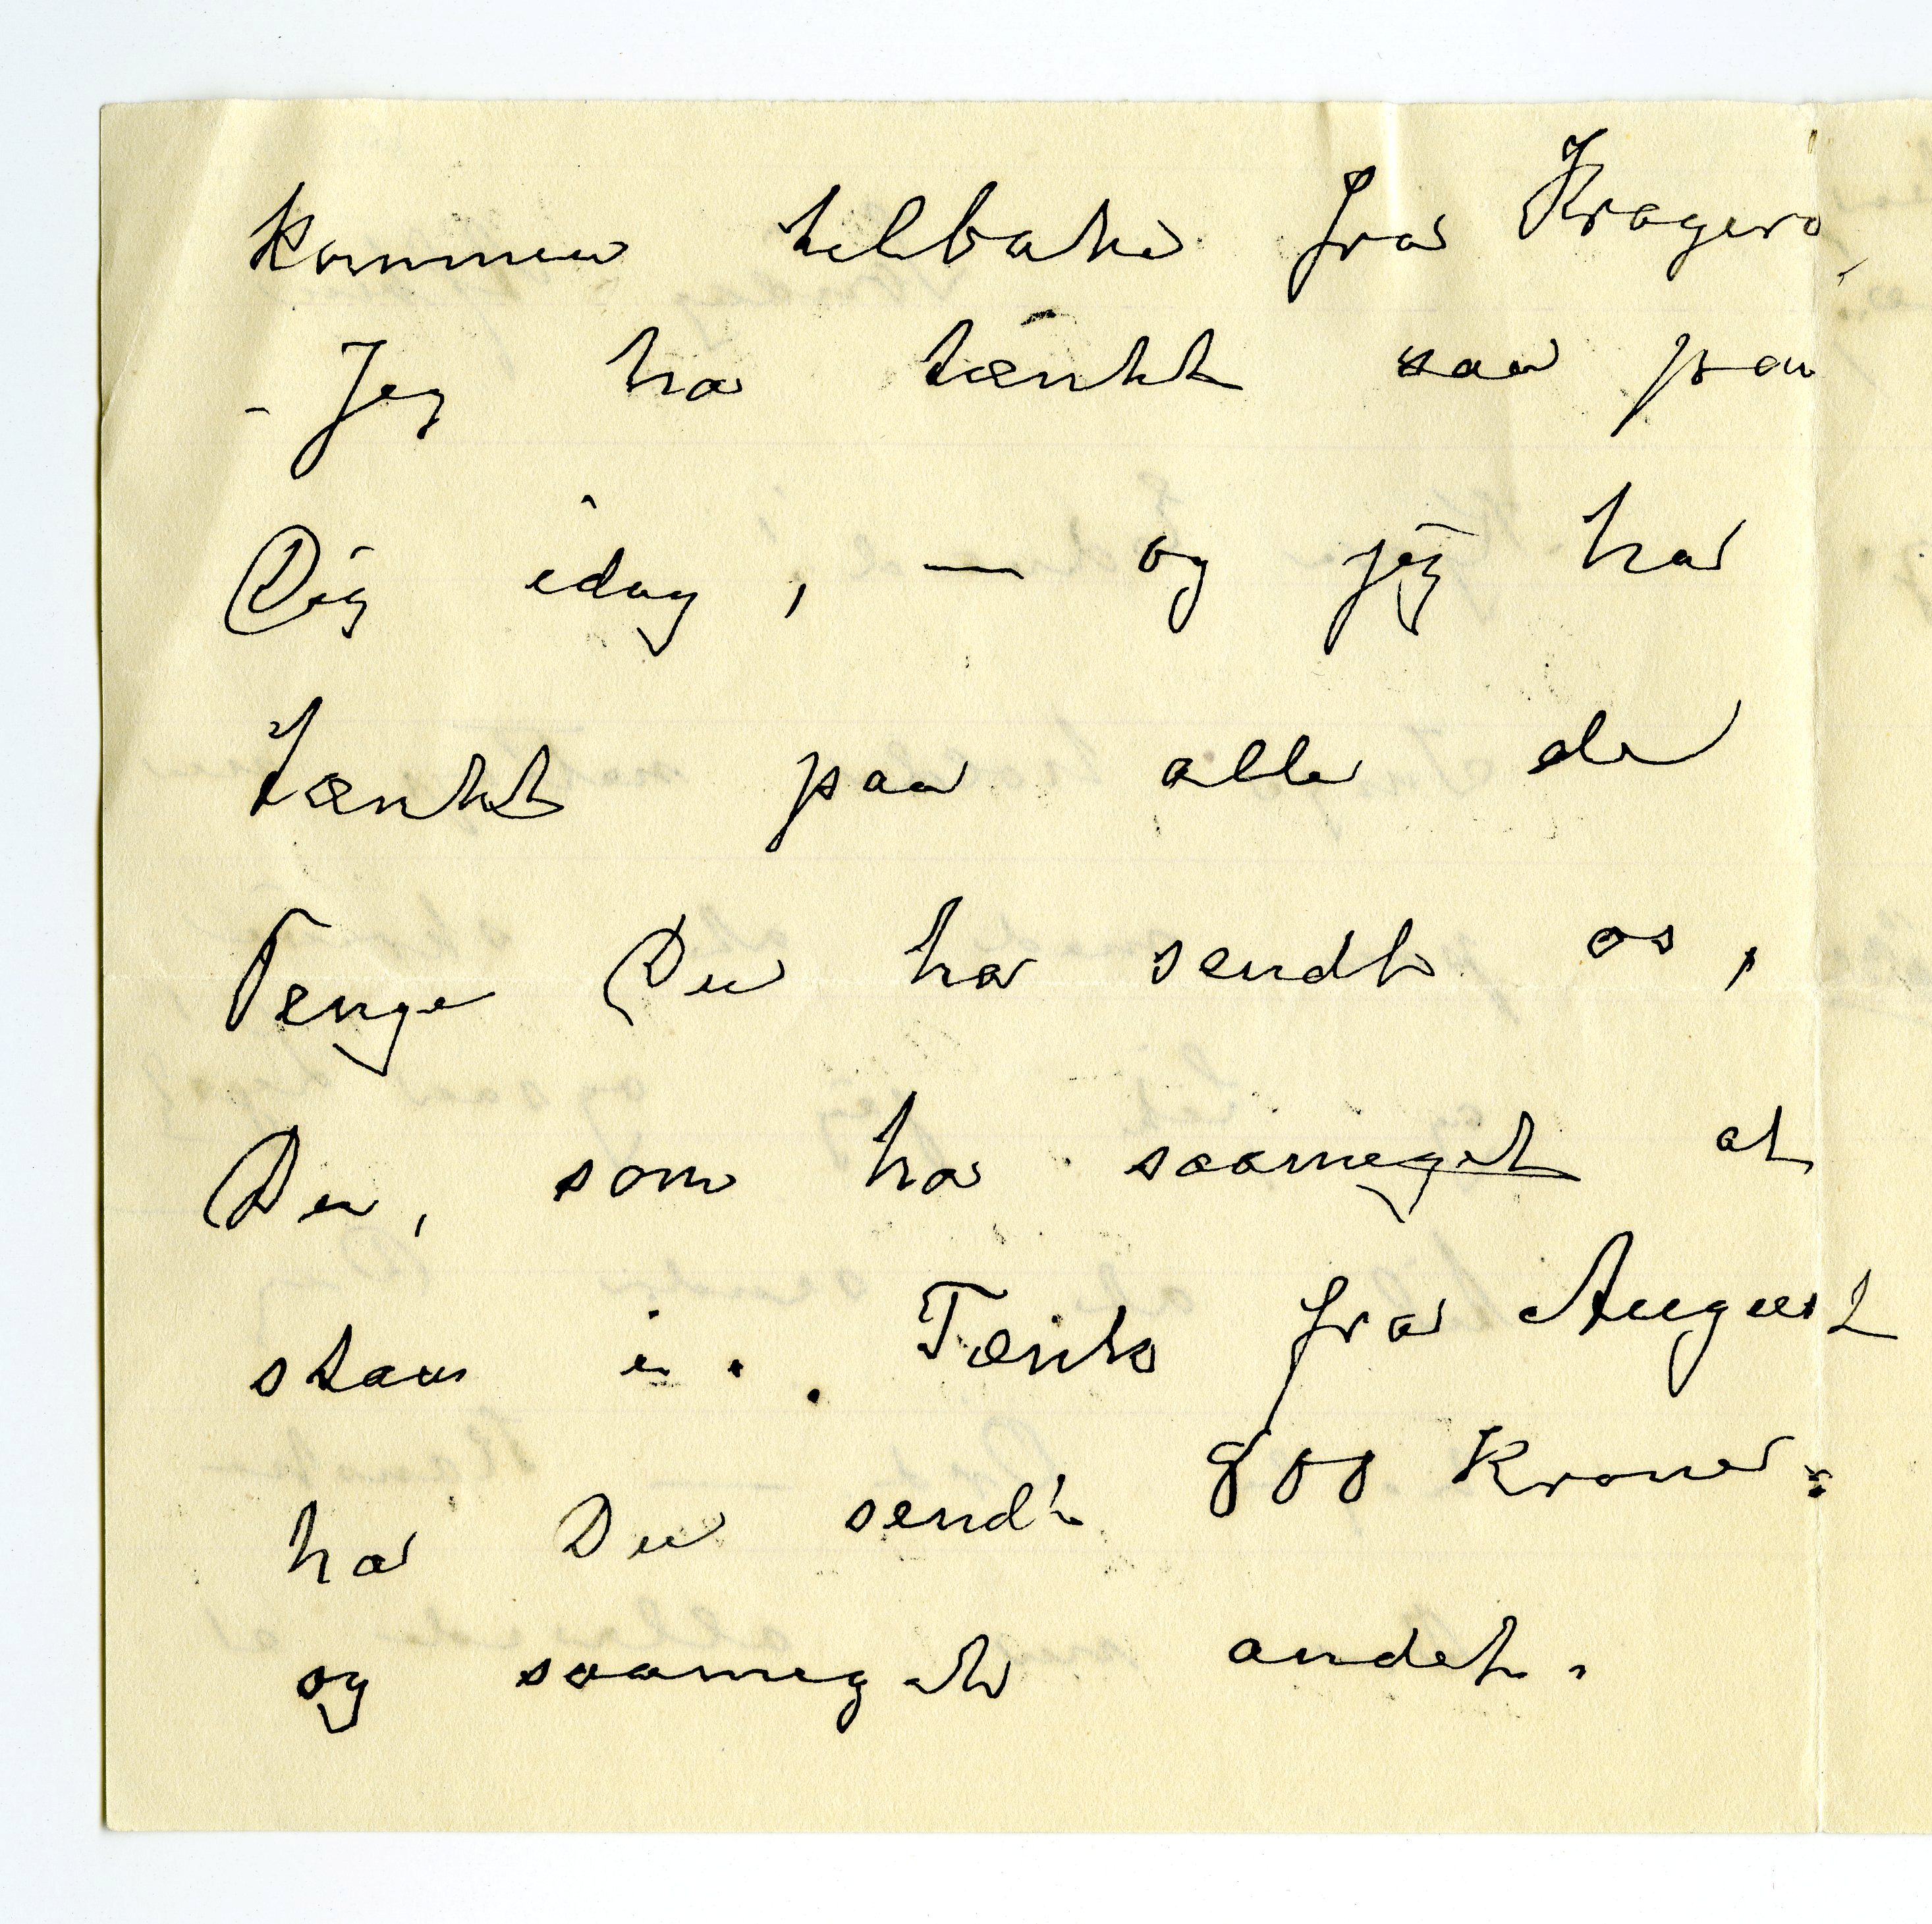 kommen tilbake fra Kragerø,
- Jeg ha tænkt saa paa
Dig idag, — og jeg har
tænkt paa alle de
Penge Du har sendt os,
Du, som har saameget at
staa i.. Tænk fra August
har Du sendt 800 Kroner.
og saameget andet.